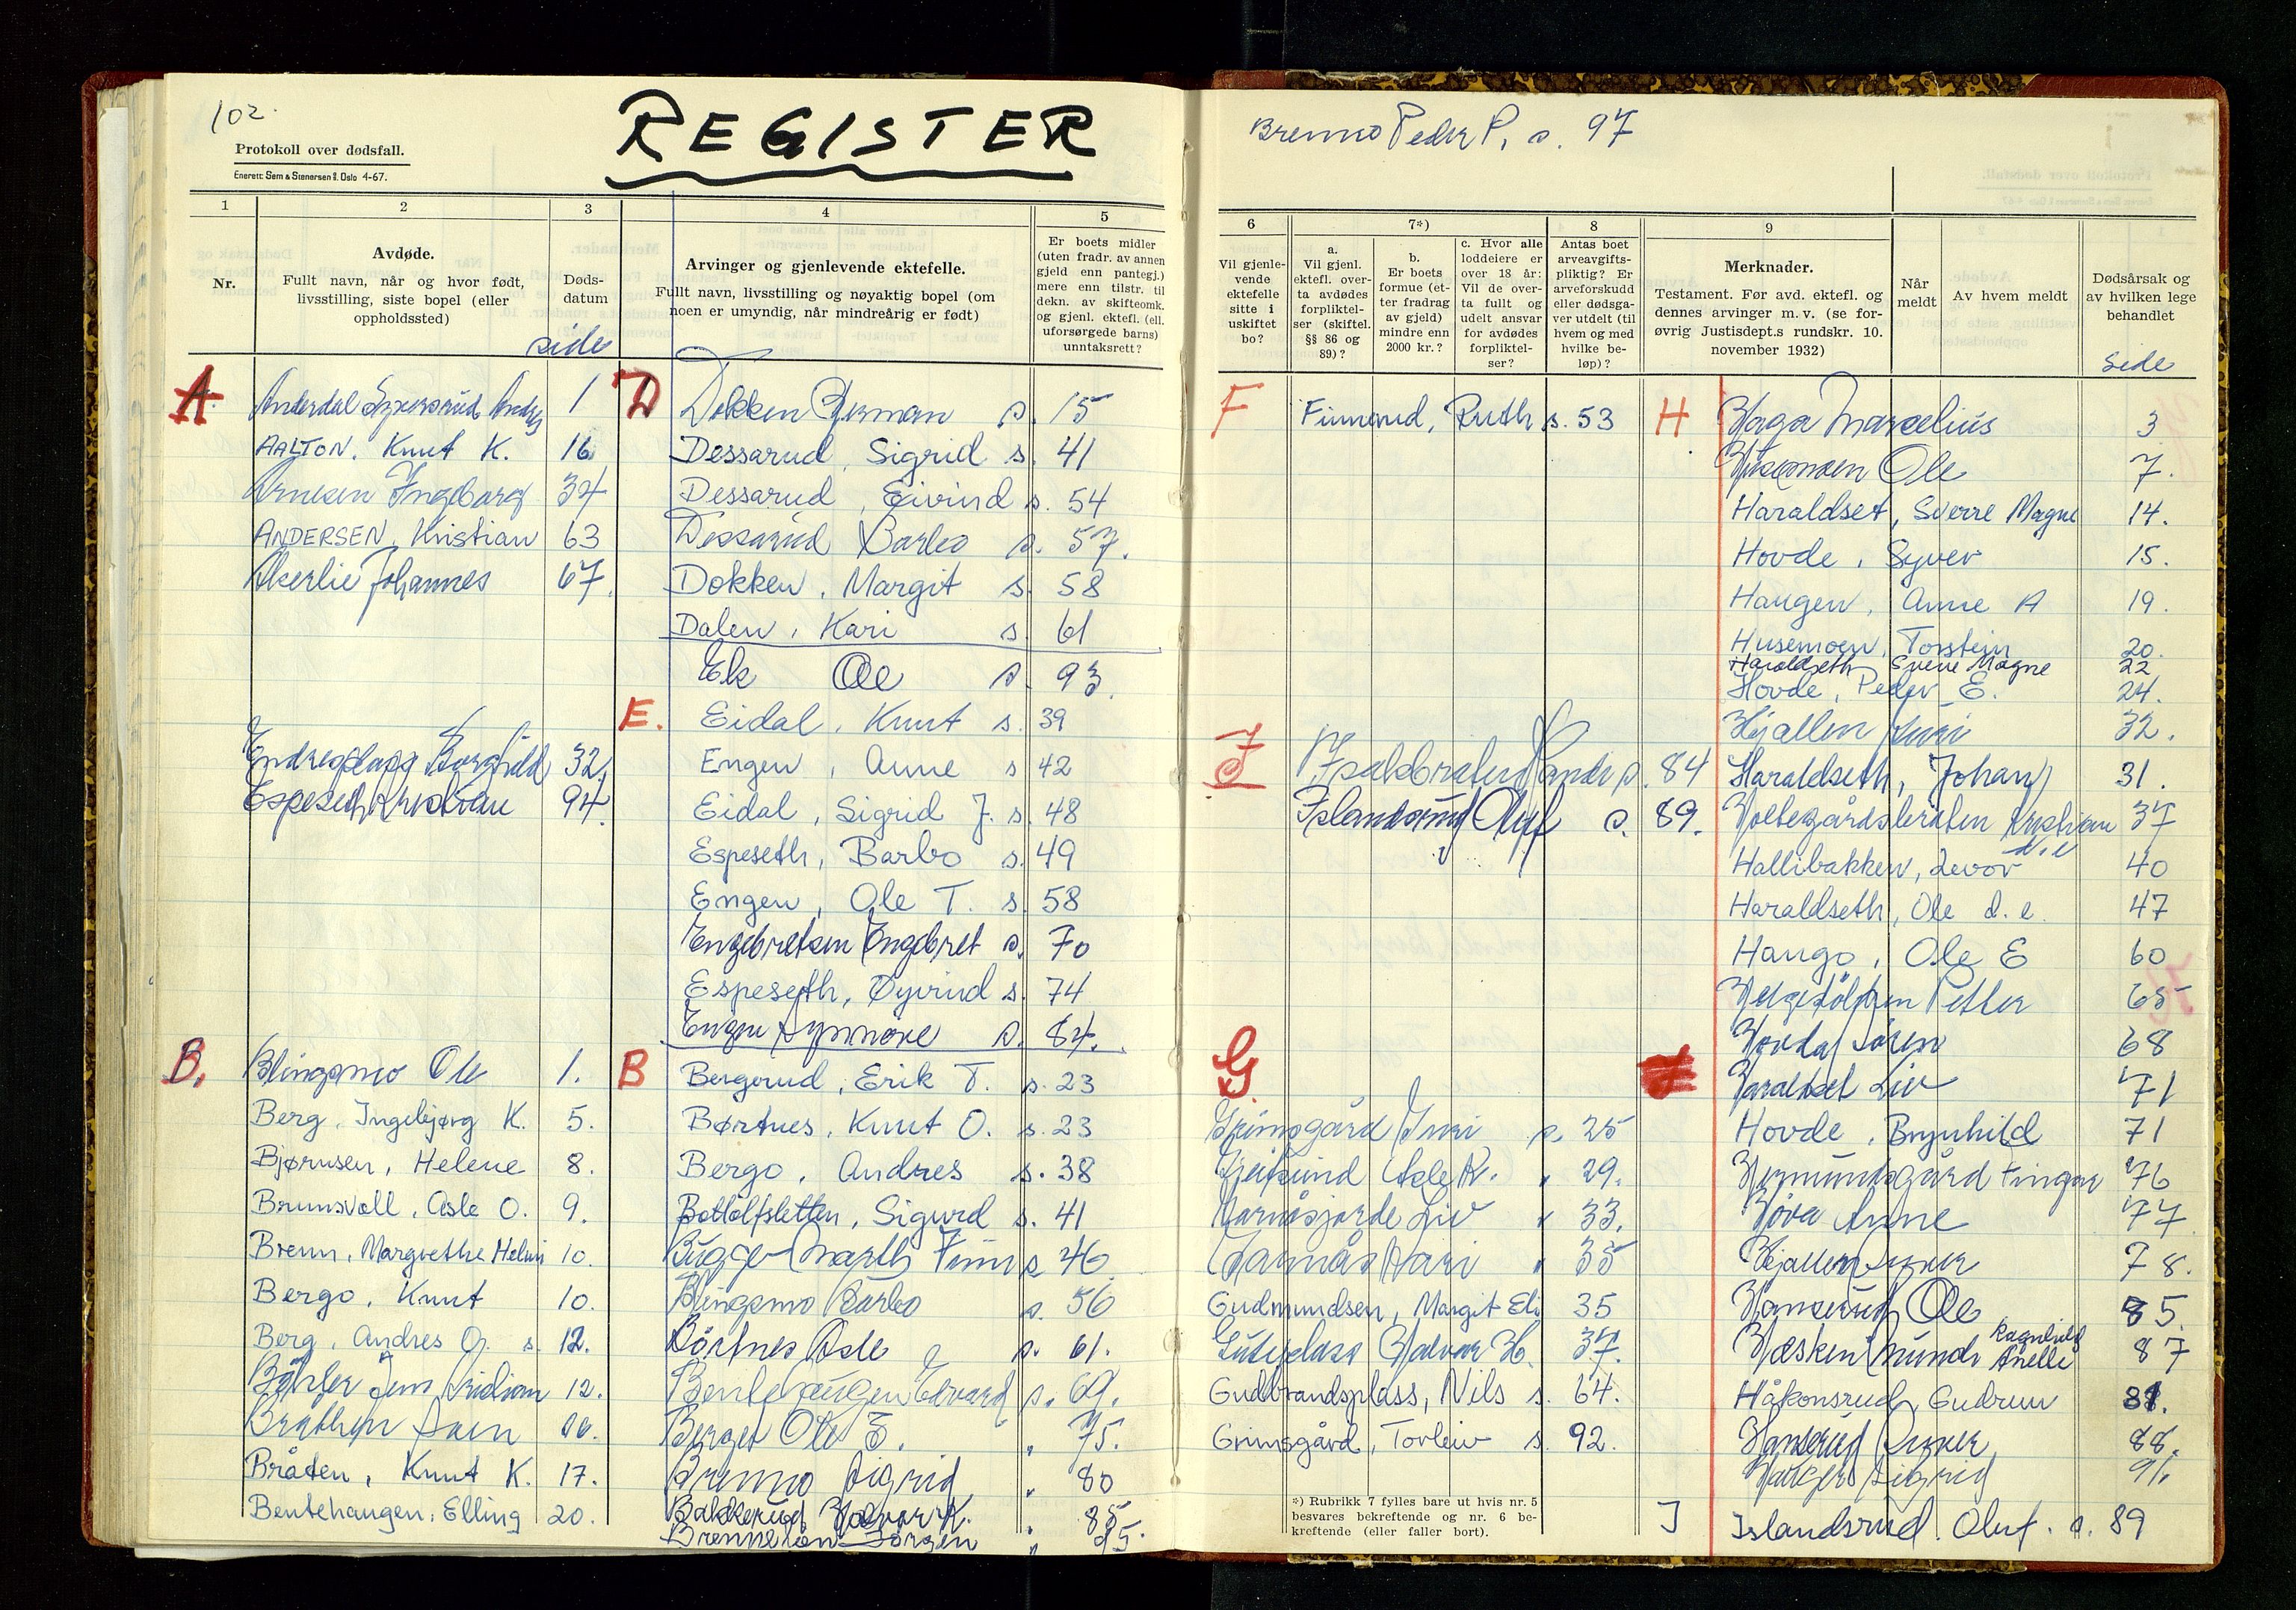 102.
REGISTER
Protokoll over dødsfall.
Enerett: Sem & Stenersen A/S. Oslo 4-67.
1
2
3
4
5
Nr.
Avdøde.
Fullt navn, når og hvor født,
livsstilling, siste bopel (eller
oppholdssted)
Døds-
datum
side
Arvinger og gjenlevende ektefelle.
Fullt navn, livsstilling og nøyaktig bopel (om
noen er umyndig, når mindreårig er født)
Er boets midler
(uten fradr. av annen
gjeld enn pantegj.)
mere enn tilstr. til
dekn. av skifteomk.
og gjenl. ektef. (ell.
uforsørgede barns)
unntaksrett?
A
Anderdal 1
AALTON. Knut K. 16
Arnesen Ingeborg 34
ANDERSEN, Kristian 63
Akerlie Johannes 67.
Endresplass Borghild 32.
Espeseth Kristian 94.
B.
Blingsmo Ole 1.
Berg, Ingebjørg K. 5.
Bjørnsen, Helene 8.
Brunsvoll, Asle O. 9.
Brenn, Margrethe Helmi 10.
Bergo, Knut 10.
Berg, Andres O. s. 12.
Jens Kristian 12.
Bråthen Svein 16.
Bråten, Knut K. 17.
Bentehaugen, Elling 20.
D
Dokken Herman s. 15
Dessarud, Sigrid s. 41
Dessarud, Eivind s. 54
Dessarud Barbo s. 57.
Dokken, Margit s. 58
Dalen, Kari s. 61
Ek Ole s. 93.
E.
Eidal, Knut s. 39
Engen, Anne s 42
Eidal, Sigrid J. s. 48
Espeseth, Barbo s. 49
Engen, Ole T. s. 58
Engebretsen Engebret s. 70
Espeseth, Øyvind s. 74
Engen Synnøve s. 84.
B
Bergerud, Erik T. s. 23
Børtnes, Knut O. s. 23
Bergo, Andres s. 38
Bottolfsletten, Sigurd s. 41
Bugge Marth Finn s 46
Blingsmo Barbo s. 56
Børtnes Asle s. 61.
Bentehaugen Edvard s. 69.
Berget Ole E. " 75.
Brenno Sigrid " 80
Bakkerud Halvor K. " 85.
Jørgen "
Brenno Peder P. s. 97
6
7*)
8
9
Vil gjenle-
vende
ektefelle
sitte i
uskiftet
bo?
a.
Vil gjenl.
ektefl. over-
ta avdødes
forpliktel-
ser (skiftel.
§§ 86 og
89)?
b.
Er boets
formue (et-
ter fradrag
av gjeld)
mindre enn
2000 kr.?
c. Hvor alle
loddeiere er
over 18 år:
Vil de over-
ta fullt og
udelt ansvar
for avdødes
forpliktel-
ser?
Antas boet
arveavgifts-
pliktig? Er
arveforskudd
eller dødsga-
ver utdelt (til
hvem og med
hvilke be-
løp)?
Merknader.
Testament. Før avd. ektefl. og
dennes arvinger m. v. (se for-
øvrig Justisdept.s rundskr. 10.
november 1932)
Når
meldt
Av hvem meldt
Dødsårsak og
av hvilken lege
behandlet
side
F
Finnerud, Ruth s. 53
I
Isakbråten Randi s. 84
Islandsrud Oluf s. 89.
G.
Grimsgård Guri s. 25
Asle K. " 29.
Garnåsjorde Liv " 33.
Garnås Kari " 35
Gudmundsen, Margit Eli 35
Guteplass Halvor H. 37.
Gudbrandsplass, Nils s. 64.
Grimsgård, Torleiv s. 92.
*) Rubrikk 7 fylles bare ut hvis nr. 5
besvares bekreftende og nr. 6 be-
kreftende (eller faller bort).
H
Haga Marselius 3
Husemoen Ole 7.
Haraldset, Sverre Magne 14.
Hovde, Syver 15.
Haugen, Anne A 19.
Husemoen, Torstein 20.
Haraldseth Sverre Magne 22
Hovde, Peder E. 24.
Hjallen Guri 32.
Haraldseth, Johan 31.
Holtegårdsbråten Kristian 37
Hallibakken, Levor d.e 40
Haraldseth, Ole d. e. 47
Haugo, Ole E 60
Petter 65
Hovda Søren 68
Haraldset Liv 71
Hovde, Brynhild 71
Hermundsgård Fingar 76
Anne 77
Hjallen Syver 78.
Hanserud Ole 85.
Ragnhild
Anette 87
Håkonsrud, Gudrun
Hansrud Syver 88.
Sigrid 91.
I
Islandsrud. Oluf. s. 89